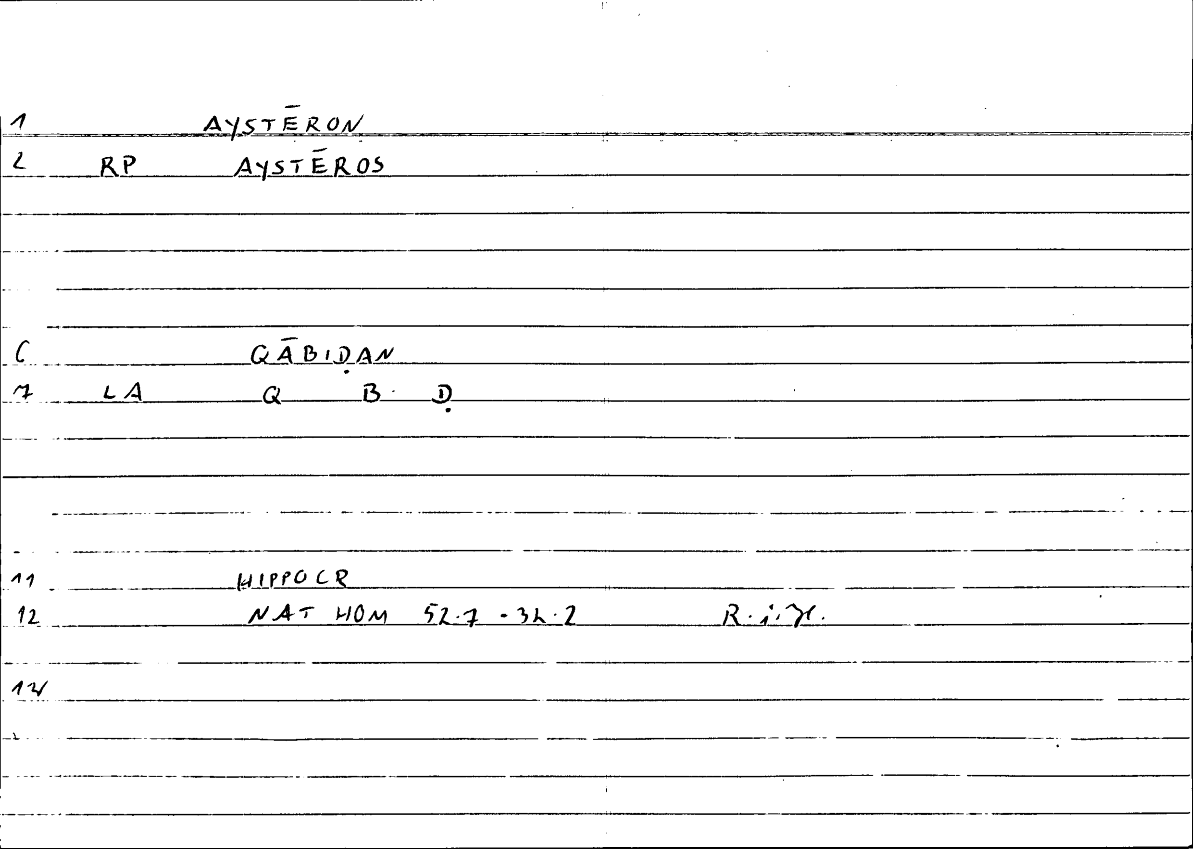 1 AYSTĒRON
2 RP AYSTĒROS
6 QĀBIḌAN
7 LA Q B Ḍ
11 HIPPOCR
12 NAT HOM 52.7 - 32.2
14